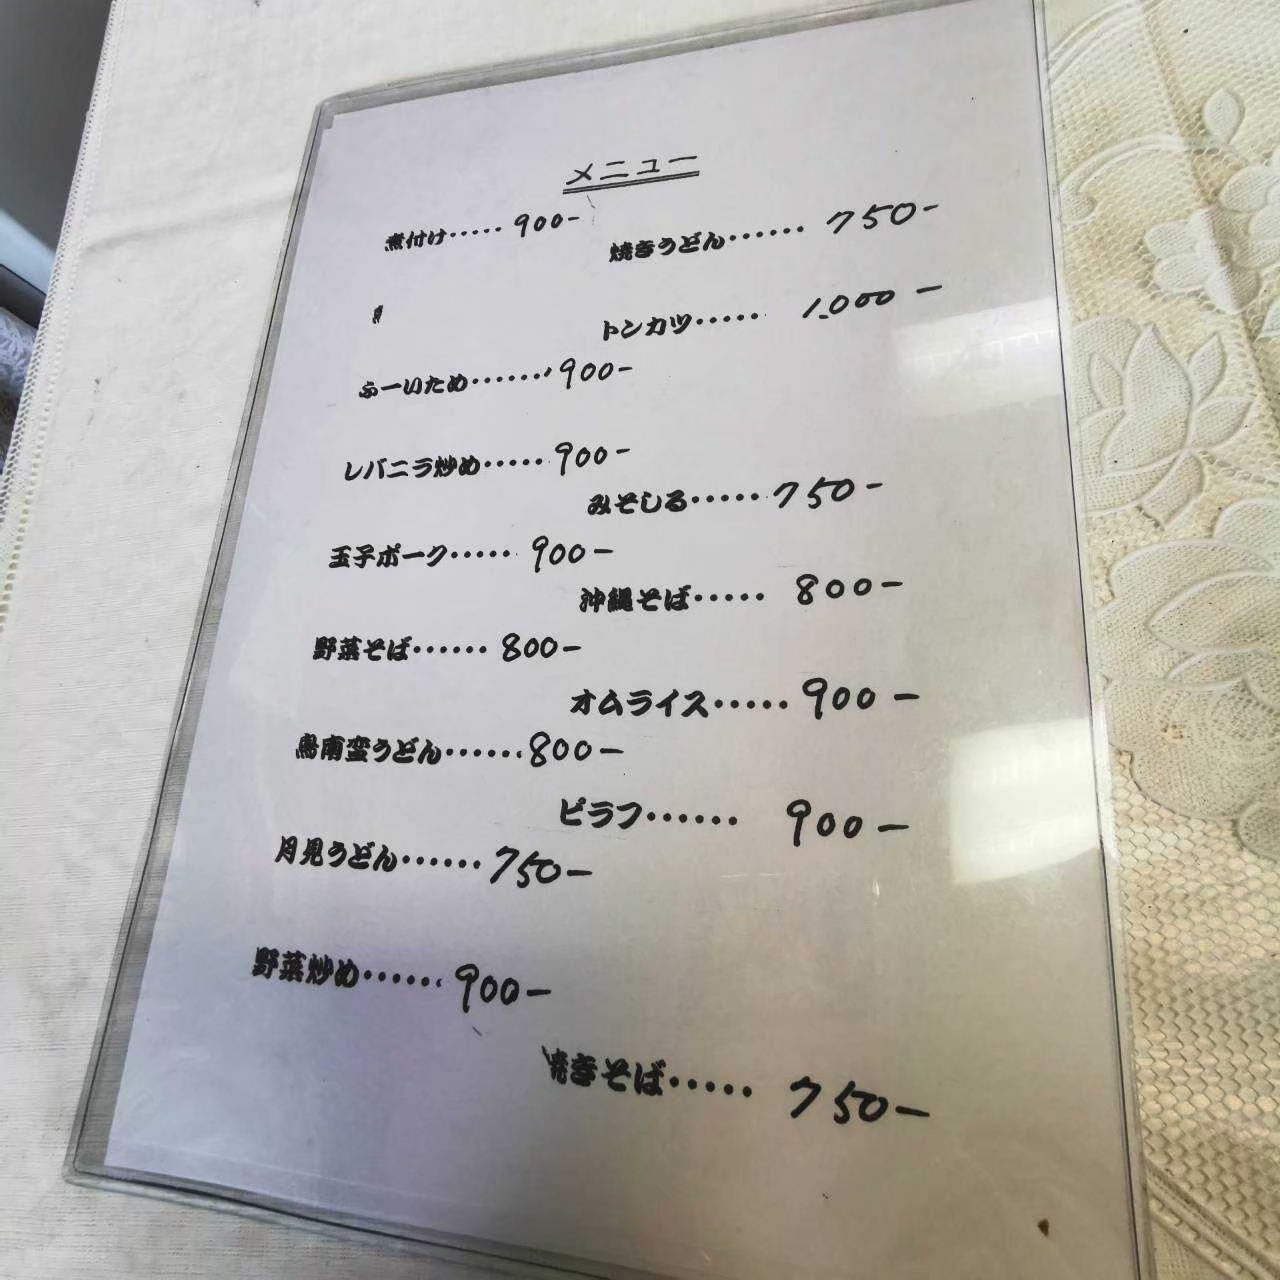 メニュー
煮付け・・・・・ 900-
焼きうどん・・・・・・ 750-
トンカツ・・・・・ 1.000-
ふーいため・・・・・・ 900-
レバニラ炒め・・・・・ 900-
みそしる・・・・・ 750-
玉子ポーク・・・・・ 900-
沖縄そば・・・・・ 800-
野菜そば・・・・・・ 800-
オムライス・・・・・ 900-
鳥南蛮うどん・・・・・・ 800-
ピラフ・・・・・・ 900-
月見うどん・・・・・・ 750-
野菜炒め・・・・・・ 900-
焼きそば・・・・・ 750-